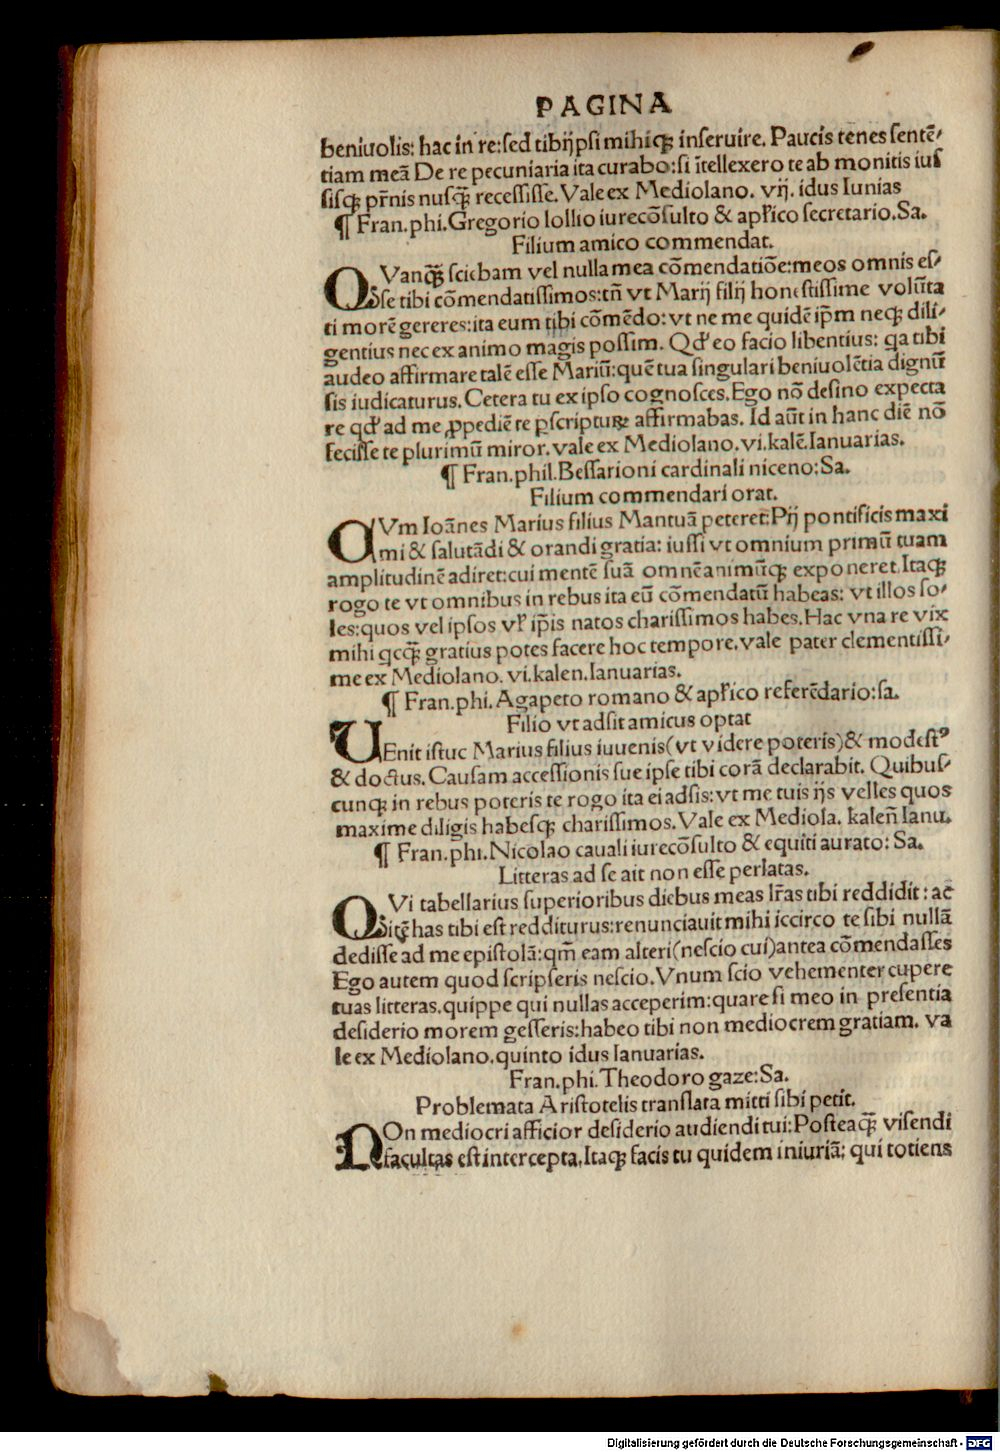 PAGINA
beniuolis: hac in re: sed tibi ipsi mihiqꝫ inseruire. Paucis tenes sentẽ-
tiam meã De re pecuniaria ita curabo: si ĩtellexero te ab monitis ius
sisqꝫ pr̃nis nusq̃ꝫ recessisse. Vale ex Mediolano. vij. idus Iunias
¶ Fran. phi. Gregorio lollio iurecõsulto & apľico secretario. Sa.
Filium amico commendat.
QVanq̃ꝫ sciebam vel nulla mea cõmendatiõe: meos omnis es-
se tibi cõmendatissimos: tñ vt Marij filij honestissime volũta
ti morẽ gereres: ita eum tibi cõmẽdo: vt ne me quidẽ ip̃m neqꝫ dili-
gentius nec ex animo magis possim. Qđ eo facio libentius: qa tibi
audeo affirmare talẽ esse Mariũ: quẽ tua singulari beniuolẽtia dignũ
sis iudicaturus. Cetera tu ex ipso cognosces. Ego nõ desino expecta
re qđ ad me ꝓpediẽ te ꝑscripturꝝ affirmabas. Id aũt in hanc diẽ nõ
fecisse te plurimũ miror. vale ex Mediolano. vi. kalẽ. Ianuarias.
¶ Fran. phil. Bessarioni cardinali niceno: Sa.
Filium commendari orat.
CVm Ioãnes Marius filius Mantuã peteret: Pij pontificis maxi
mi & salutãdi & orandi gratia: iussi vt omnium primũ tuam
amplitudinẽ adiret: cui mentẽ suã omnẽ animũqꝫ exponeret. Itaqꝫ
rogo te vt omnibus in rebus ita eũ cõmendatũ habeas: vt illos so-
les: quos vel ipsos vľ ip̃is natos charissimos habes. Hac vna re vix
mihi qcq̃ꝫ gratius potes facere hoc tempore. vale pater clementissi-
me ex Mediolano. vi. kalen. Ianuarias.
¶ Fran. phi. Agapeto romano & apľico referẽdario: sa.
Filio vt adsit amicus optat
UEnit istuc Marius filius iuuenis (vt videre poteris) & modestꝰ
& doctus. Causam accessionis sue ipse tibi corã declarabit. Quibus-
cunqꝫ in rebus poteris te rogo ita ei adsis: vt me tuis ijs velles quos
maxime diligis habesqꝫ charissimos. Vale ex Mediola. kaleñ Ianu.
¶ Fran. phi. Nicolao cauali iurecõsulto & equiti aurato: Sa.
Litteras ad se ait non esse perlatas.
QVi tabellarius superioribus diebus meas lr̃as tibi reddidit: ac
itẽ has tibi est redditurus: renunciauit mihi iccirco te sibi nullã
dedisse ad me epistolã: qm̃ eam alteri (nescio cui) antea cõmendasses
Ego autem quod scripseris nescio. Vnum scio vehementer cupere
tuas litteras. quippe qui nullas acceperim: quare si meo in presentia
desiderio morem gesseris: habeo tibi non mediocrem gratiam. va
le ex Mediolano. quinto idus Ianuarias.
Fran. phi. Theodoro gaze: Sa.
Problemata Aristotelis translata mitti sibi petit.
NOn mediocri afficior desiderio audiendi tui: Posteaq̃ꝫ visendi
facultas est intercepta. Itaqꝫ facis tu quidem iniuriã: qui totiens
Digitalisierung gefördert durch die Deutsche Forschungsgemeinschaft - DFG